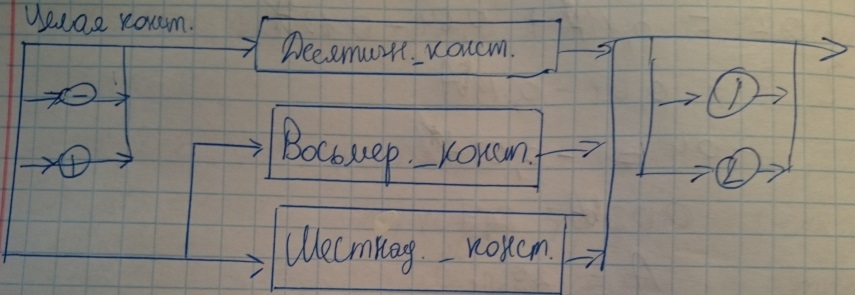 Целая конст.
Десятичн._конст.
-
+
l
Восьмер._конст.
L
Шестнад._конст.